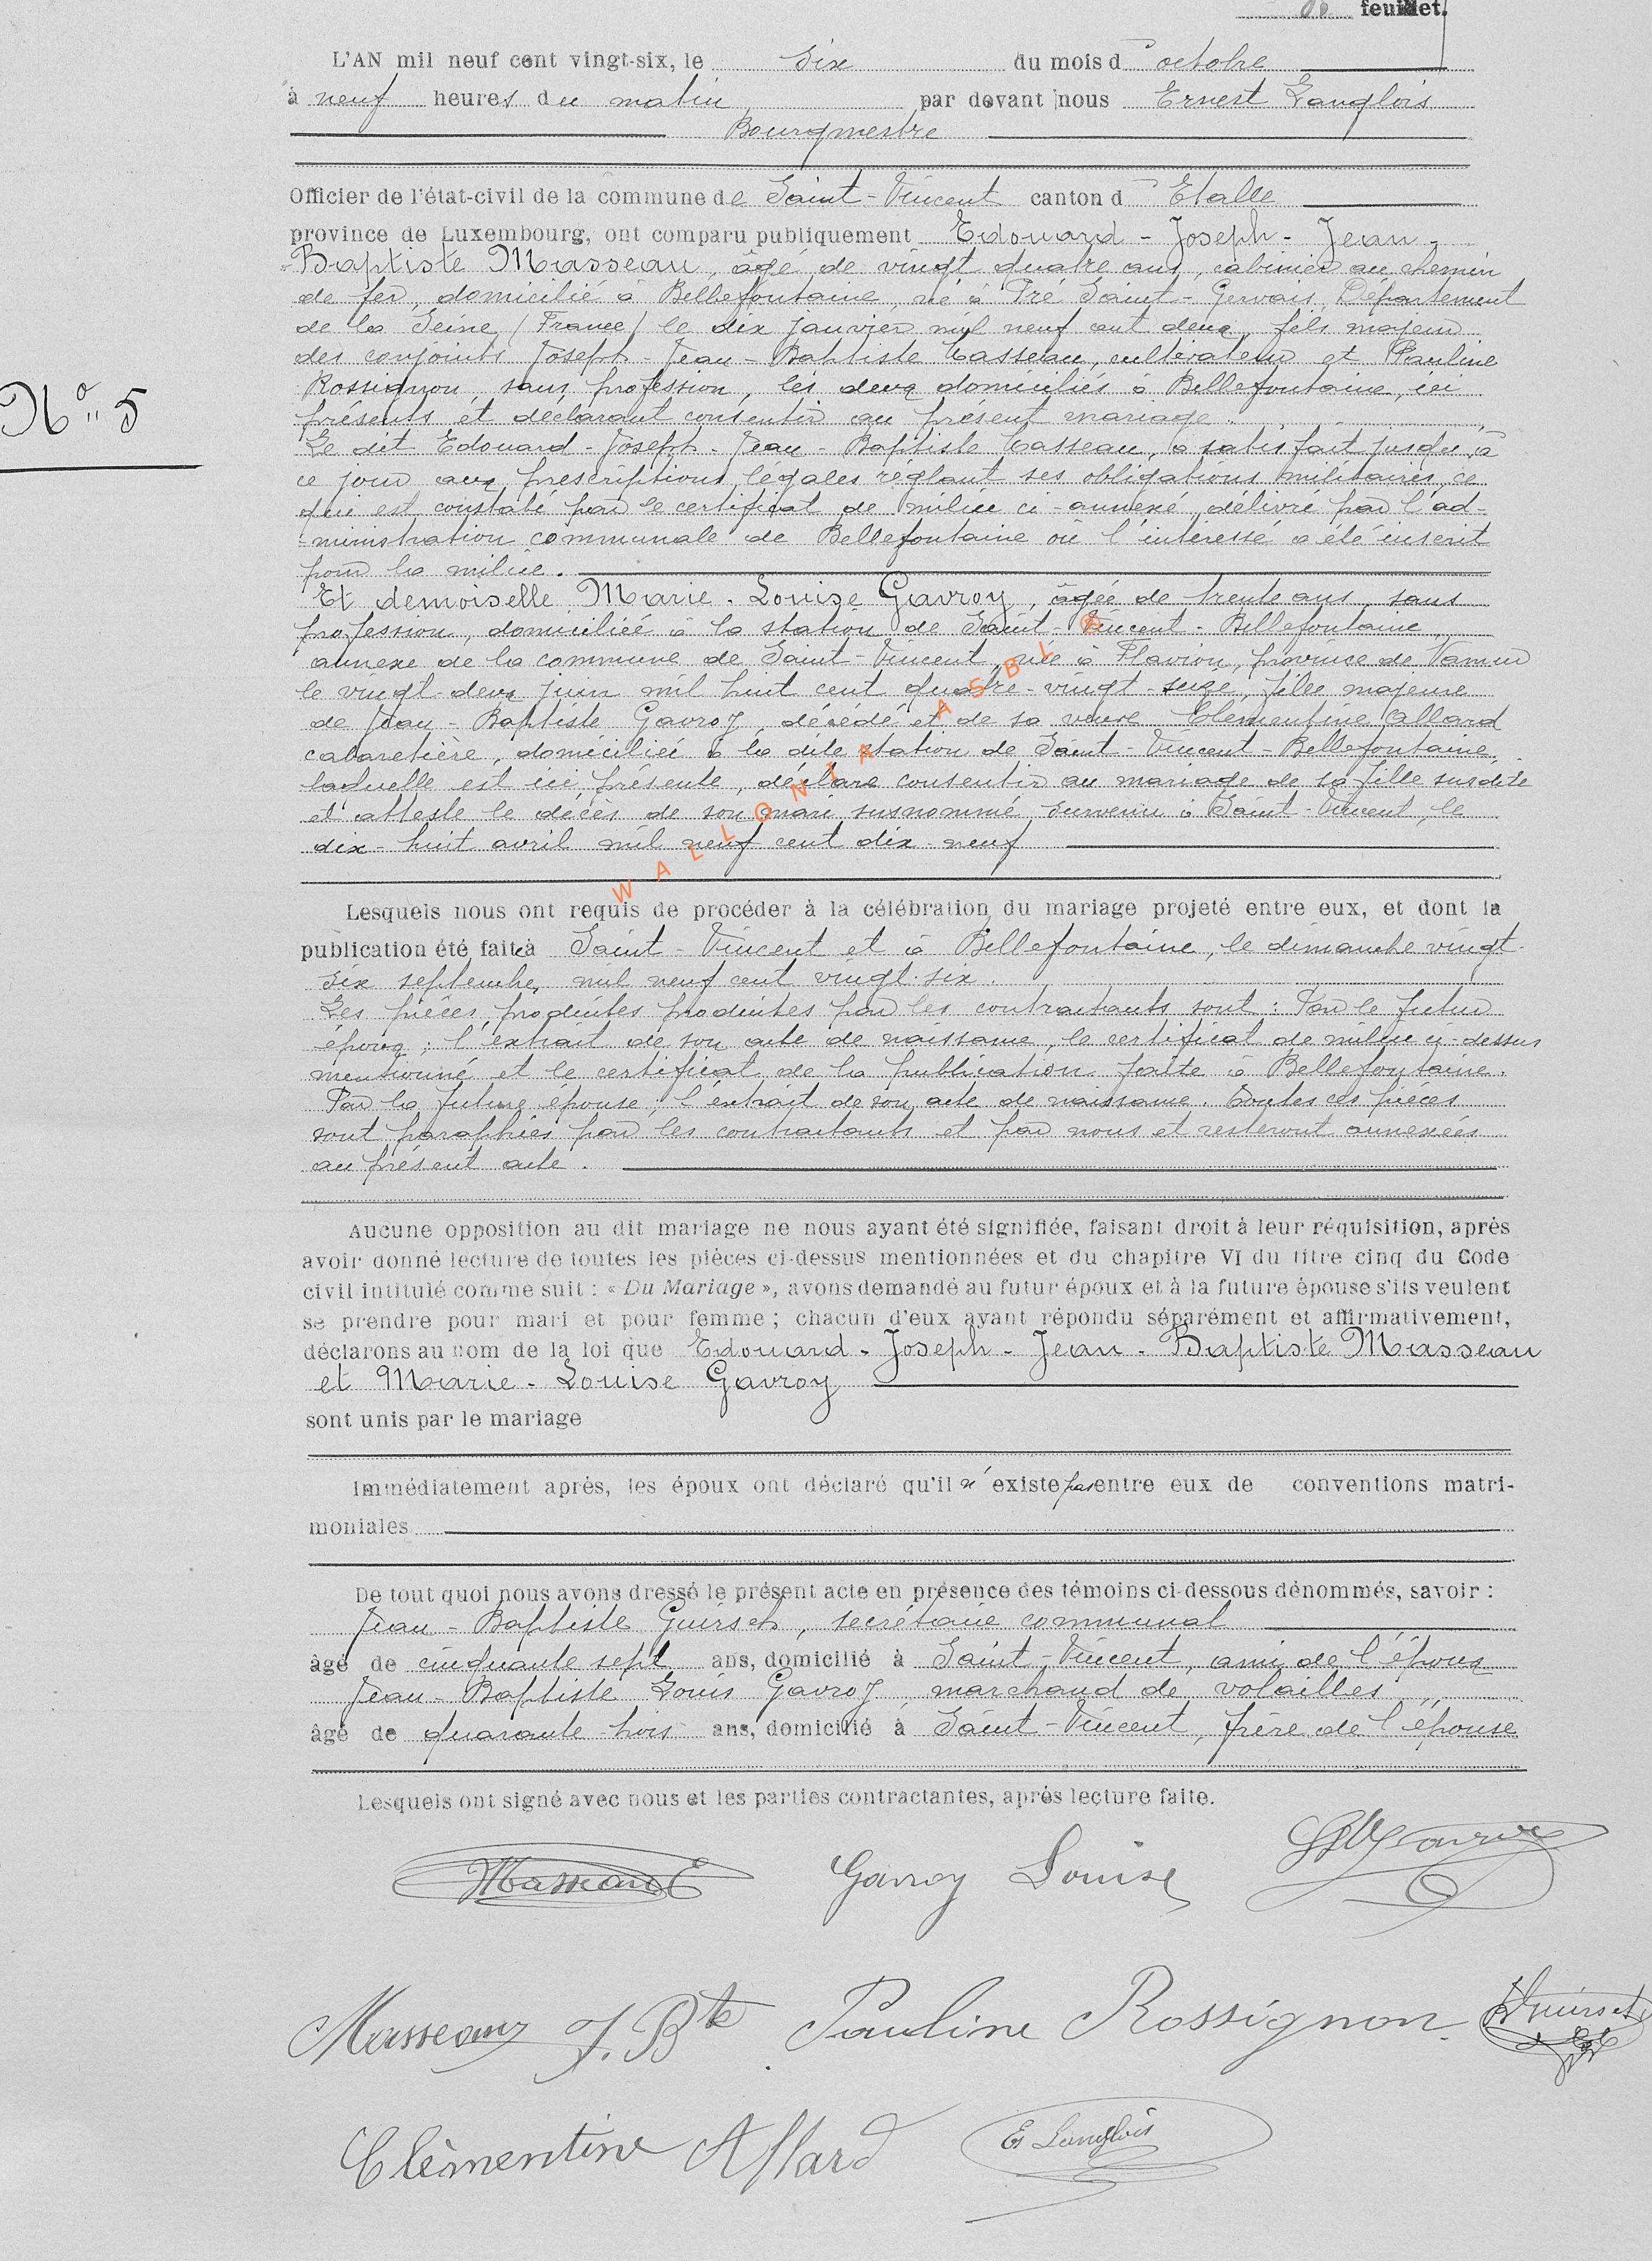 feuillet.
L'AN mil neuf cent vingt-six, le six du mois d octobre
à neuf heures du matin, par devant nous Ernest Langlois
Bourgmestre
Officier de l'état-civil de la commune de Saint-Vincent canton d Etalle
province de Luxembourg, ont comparu publiquement Edouard - Joseph - Jean -
Baptiste Masseau, âgé de vingt quatre ans, cabinier au chemin
de fer, domicilié à Bellefontaine, né à Pré Saint-Gervais, Département
de la Seine (France) le dix janvier mil neuf cent deux, fils majeur
des conjoints Joseph-Jean-Baptiste Masseau, cultivateur et Pauline
Rossignon, sans profession, les deux domiciliés à Bellefontaine, ici
N° 5
présents et déclarant consentir au présent mariage.
Le dit Edouard-Joseph-Jean-Baptiste Masseau, a satisfait jusqu'à
ce jour aux prescriptions légales réglant ses obligations militaires, ce
qui est constaté par le certificat de milice ci-annexé, délivré par l'ad-
ministration communale de Bellefontaine où l'intéressé a été inscrit
pour la milice.
Et demoiselle Marie-Louise Gavroy, âgée de trente ans, sans
profession, domiciliée à la station de Saint-Vincent-Bellefontaine,
annexe de la commune de Saint-Vincent, née à Flavion, province de Namur
le vingt-deux juin mil huit cent quatre-vingt-seize, fille majeure
de Jean-Baptiste Gavroy, décédé et de sa veuve Clémentine Allard
cabaretière, domiciliée à la dite station de Saint-Vincent-Bellefontaine,
laquelle est ici présente, déclare consentir au mariage de sa fille susdite
et atteste le décès de son mari susnommé, survenu à Saint-Vincent, le
dix-huit avril mil neuf cent dix-neuf
WALLONIA ASBL ®
Lesquels nous ont requis de procéder à la célébration du mariage projeté entre eux, et dont la
publication été faite à Saint-Vincent et à Bellefontaine, le dimanche vingt-
six septembre, mil neuf cent vingt-six.
Les pièces produites produites par les contractants sont : Par le futur
époux ; l'extrait de son acte de naissance, le certificat de milice ci-dessus
mentionné et le certificat de la publication faite à Bellefontaine.
Par la future épouse ; l'extrait de son acte de naissance. Toutes ces pièces
sont paraphées par les contractants et par nous et resteront annexées
au présent acte.
Aucune opposition au dit mariage ne nous ayant été signifiée, faisant droit à leur réquisition, après
avoir donné lecture de toutes les pièces ci-dessus mentionnées et du chapitre VI du titre cinq du Code
civil intitulé comme suit : « Du Mariage », avons demandé au futur époux et à la future épouse s'ils veulent
se prendre pour mari et pour femme ; chacun d'eux ayant répondu séparément et affirmativement,
déclarons au nom de la loi que Edouard - Joseph - Jean - Baptiste Masseau
et Marie - Louise Gavroy
sont unis par le mariage
Immédiatement après, les époux ont déclaré qu'il n'existe pas entre eux de conventions matri-
moniales
De tout quoi nous avons dressé le présent acte en présence des témoins ci-dessous dénommés, savoir :
Jean-Baptiste Guirsch, secrétaire communal
âgé de cinquante sept ans, domicilié à Saint-Vincent, ami de l'époux
Jean-Baptiste Louis Gavroy, marchand de volailles
âgé de quarante-trois ans, domicilié à Saint-Vincent, frère de l'épouse
Lesquels ont signé avec nous et les parties contractantes, après lecture faite.
Masseau E Gavroy Louise
Masseaux J. Bte Pauline Rossignon Guirsch
Clèmentine Allard E Langlois